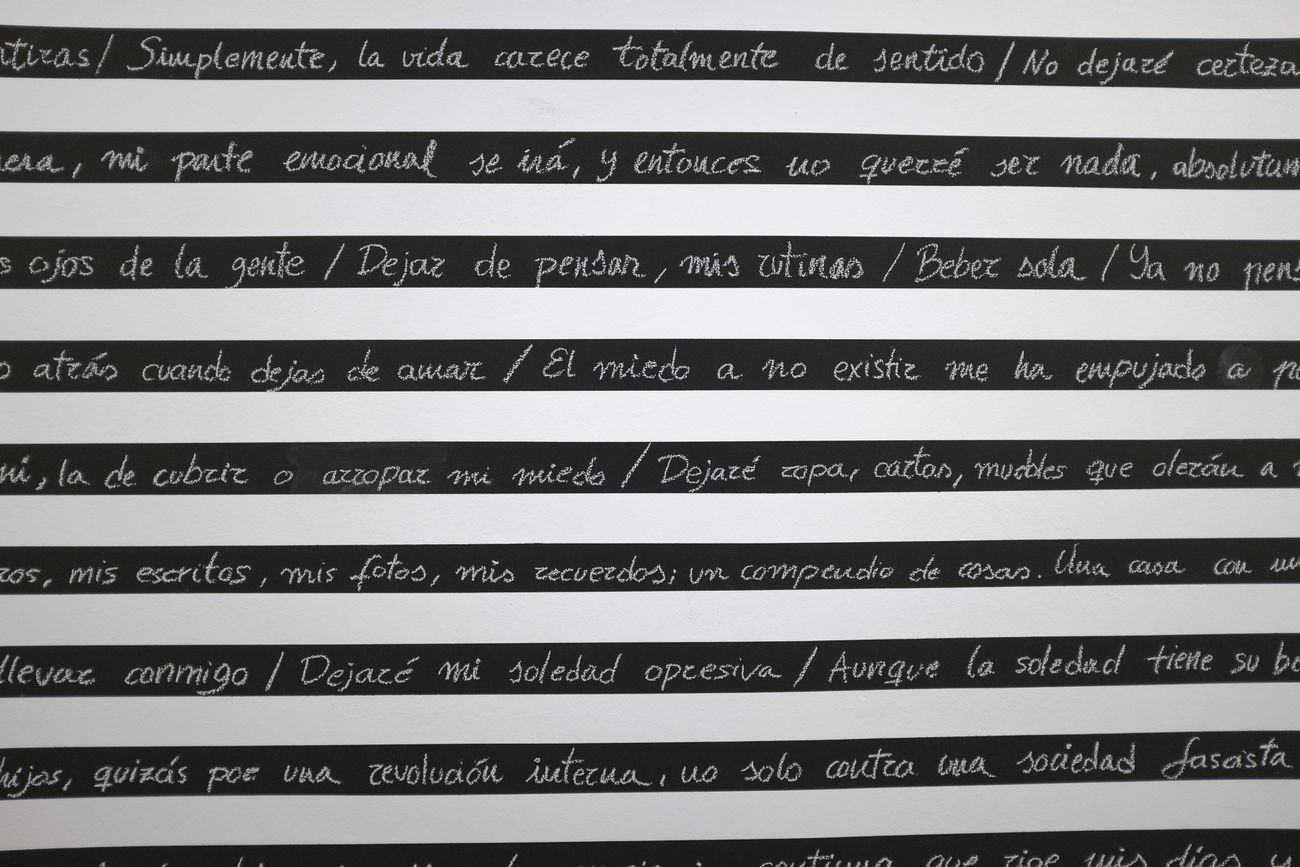 / Simplemente, la vida carece totalmente de sentido / No dejaré certeza
mi parte emocional se irá, y entonces no querré ser nada, absolutam
s ojos de la gente / Dejar de pensar, mis rutinas / Beber sola / Ya no pens
o atrás cuando dejas de amar / El miedo a no existir me ha empujado a p
mi, la de cubrir o arropar mi miedo / Dejaré ropa, cartas, muebles que olerán a
ros, mis escritos, mis fotos, mis recuerdos; un compendio de cosas. Una casa con un
llevar conmigo / Dejaré mi soledad opresiva / Aunque la soledad tiene su be
hijos, quizás por una revolución interna, no solo contra una sociedad fascista
continua que rige mis días y